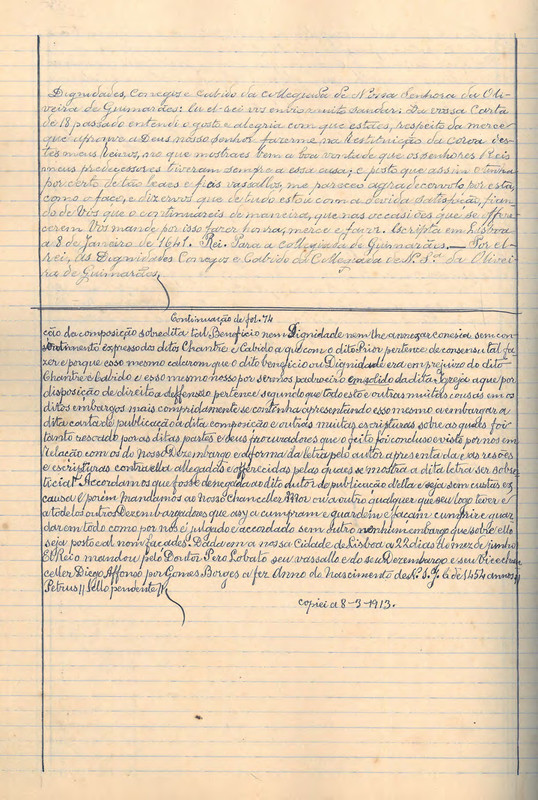 Dignidades, Conegos e Cabido da Collegiada de Nossa Senhora da Oli-
veira de Guimarães: Eu el-rei vos envio muito saudar. Da vossa Carta
de 18 passado entendi o gosto e alegria com que estaes, respeito da merce
que aprouve a Deus nosso senhor fazerme na Restituição da coroa des-
tes meus Reinos, no que mostraes bem a boa vontade que os senhores Reis
meus predecessores tiveram sempre a essa casa; e posto que assim o tinha
por certo de tão leaes e fieis vassallos, me pareceu agradecervolo por esta,
como o faço, e dizervos que de tudo estou com a devida satisfação, fian-
do de Vós que o continuareis de maneira, que nas occasiões que se offre-
cerem Vos mande por isso fazer honra, merce e favor. Escripta em Lisboa
a 8 de Janeiro de 1641. Rei. Para a collegiada de Guimarães. — Por el-
rei, ás Dignidades Conegos e Cabido da Collegiada de N. Sª. da Olivei-
ra de Guimarães.
Continuação de fol. 74
ção da composição sobredita tal Beneficio nem Dignidade nem lhe annexar conesia sem con-
sentimento expresso dos ditos Chantre e Cabido a que com o dito Prior pertence de consensu tal fa-
zer e porque esso mesmo a o dito beneficio ou Dignidade era em prejuizo do dito
Chantre e Cabido e esso mesmo nosso por sermos padroeiro em solido da dita Igreja a que por
disposição de direito a deffensão pertence segundo que todo esto e outras muitas cousas em os
ditos embargos mais compridamente se continha apresentando esso mesmo a embargar a
dita carta de publicação a dita composição e outras muitas escrituras sobre as quaes foi
tanto rescoado por as ditas partes e seus procuradores que o feito foi concluso e visto por nós em
Relação com os do nosso Dezembargo e a forma da letra pelo autor apresentada e as resões
e escrituras contra ella allegadas e offrecidas pelas quaes se mostra a dita letra ser sobre-
ticia Accordamos que fosse denegada ao dito autor de publicação della e seja sem custas ex
causa e porém mandamos ao nosso Chanceller Mor ou a outro qualquer que seu logo tever e
a todolos outros Dezembargadores que asy a cumpram e guardem e façam cumprir e guar-
dar em todo como por nós é julgado e accordado sem outro nenhum embargo que sobre ello
seja posto e al nom façades. Dada em a nossa Cidade de Lisboa a 22 dias do mez de junho
El Rei o mandou pelo Doutor Pero Lobato seu vassallo e do seu Dezembargo e seu Vicechan-
celler Diego Affonso por Gomes Borges a fez Anno do Nascimento de N. S. J. C. de 1454 annos //
Petrus // Sello pendente //
Copiei a 8-3-1913.